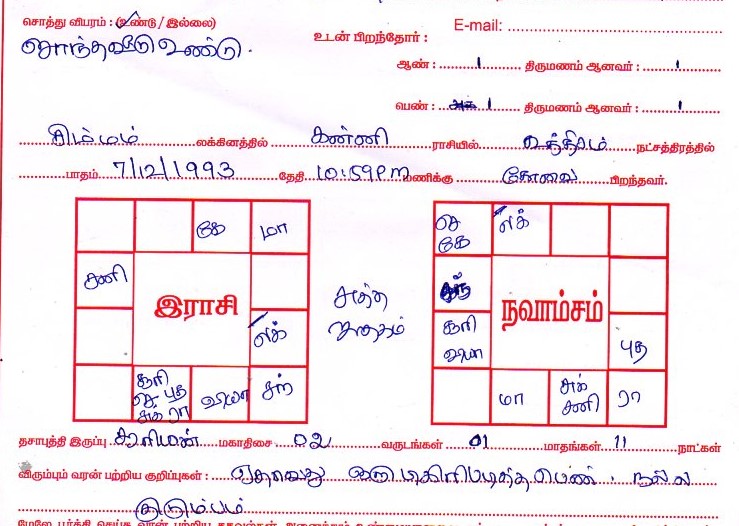 சொத்து விபரம் : (உண்டு / இல்லை)
E-mail:
சொந்தவீடு உண்டு.
உடன் பிறந்தோர் :
ஆண் : 1 திருமணம் ஆனவர் : 1
பெண் : 1 திருமணம் ஆனவர் : 1
சிம்மம் லக்கினத்தில் கன்னி ராசியில் உத்திரம் நட்சத்திரத்தில்
பாதம் 7/12/1993 தேதி 10:59 PM மணிக்கு கோவை பிறந்தவர்.
கே மா
சனி
இராசி
ல/க்
சூரி செ புத சுக் ரா வியா சந்
சுத்த ஜாதகம்
செ கே ல/க்
நவாம்சம்
சூரி வியா
புத
மா சுக் சனி ரா
தசாபுத்தி இருப்பு சூரியன் மகாதிசை 02 வருடங்கள் 01 மாதங்கள் 11 நாட்கள்
விரும்பும் வரன் பற்றிய குறிப்புகள் : ஏதாவது ஒரு டிகிரி படித்த பெண். நல்ல
குடும்பம்